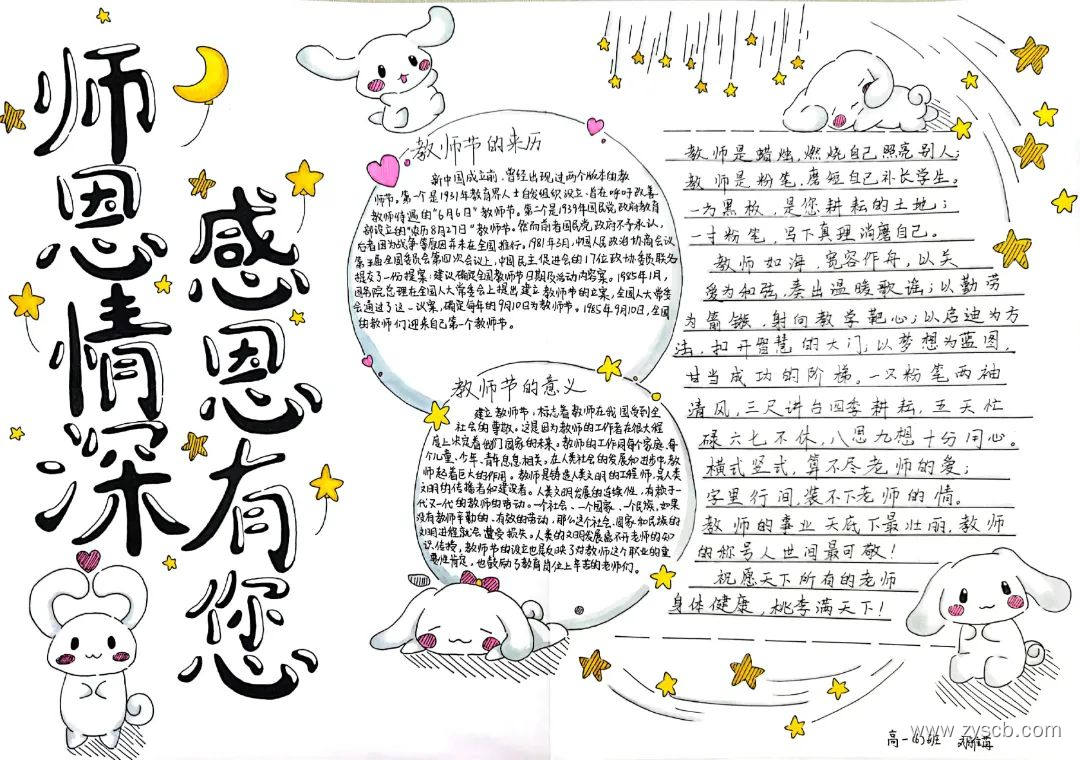 师恩情深
感恩有您
教师节的来历
新中国成立前,曾经出现过两个版本的教
师节。第一个是1931年教育界人士自发组织设立,旨在呼吁改善
教师待遇的“6月6日”教师节。第二个是1939年国民党政府教育
部设立的“农历8月27日”教师节。然而前者国民党政府不予承认,
后者因为战争等原因并未在全国推行。1981年3月,中国人民政治协商会议
第五届全国委员会第四次会议上,中国民主促进会的17位政协委员联名
提交了一份提案:建议确定全国教师节日期及活动内容案。1985年1月,
国务院总理在全国人大常委会上提出建立教师节的立案,全国人大常委
会通过了这一议案,确定每年的9月10日为教师节。1985年9月10日,全国
的教师们迎来自己第一个教师节。
教师节的意义
建立教师节,标志着教师在我国受到全
社会的尊敬。这是因为教师的工作者在很大程
度上决定着他们国家的未来。教师的工作同每个家庭、每
个儿童、少年、青年息息相关。在人类社会的发展和进步中,教
师起着巨大的作用。教师是铸造人类文明的工程师,是人类
文明的传播者和建设者。人类文明发展的连续性,有赖于一
代又一代的教师的劳动。一个社会、一个国家、一个民族,如果
没有教师辛勤的、有效的劳动,那么这个社会、国家和民族的
文明进程就会遭受损失。人类的文明发展离不开老师的知
识传授,教师节的设立也是反映了对教师这个职业的重
要性肯定,也鼓励了教育岗位上辛苦的老师们。
教师是蜡烛,燃烧自己照亮别人;
教师是粉笔,磨短自己补长学生。
一方黑板,是您耕耘的土地;
一寸粉笔,写下真理消磨自己。
教师如海,宽容作舟,以关
爱为和弦,奏出温暖歌谣;以勤劳
为箭镞,射向教学靶心;以启迪为方
法,扣开智慧的大门,以梦想为蓝图,
甘当成功的阶梯。一只粉笔两袖
清风,三尺讲台四季耕耘,五天忙
碌六七不休,八思九想十分用心。
横式竖式,算不尽老师的爱;
字里行间,装不下老师的情。
教师的事业天底下最壮丽,教师
的称号人世间最可敬!
祝愿天下所有的老师
身体健康,桃李满天下!
www.zyscb.com